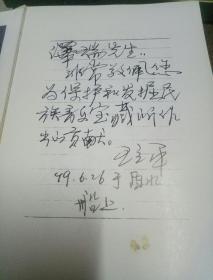 瑞先生:
非常敬佩您
为保护和发掘民
族音乐宝藏所作
出的贡献。
王
99.6.26于